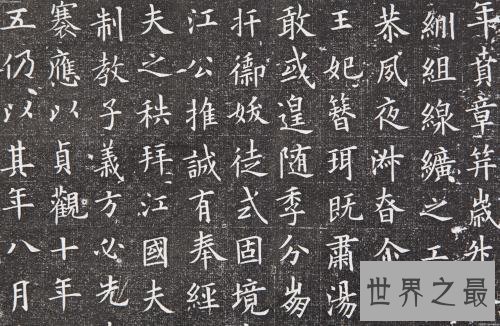 年賁章筓歲
組線纊之工
恭夙夜
王妃簪珥既肅湯
敢或遑随季分崩
扞禦妖徒式固境
江公推誠有奉經
夫之秩拜江國夫
制教子義方必先
褰應以貞觀十年
五仍以其年八月
世界之最